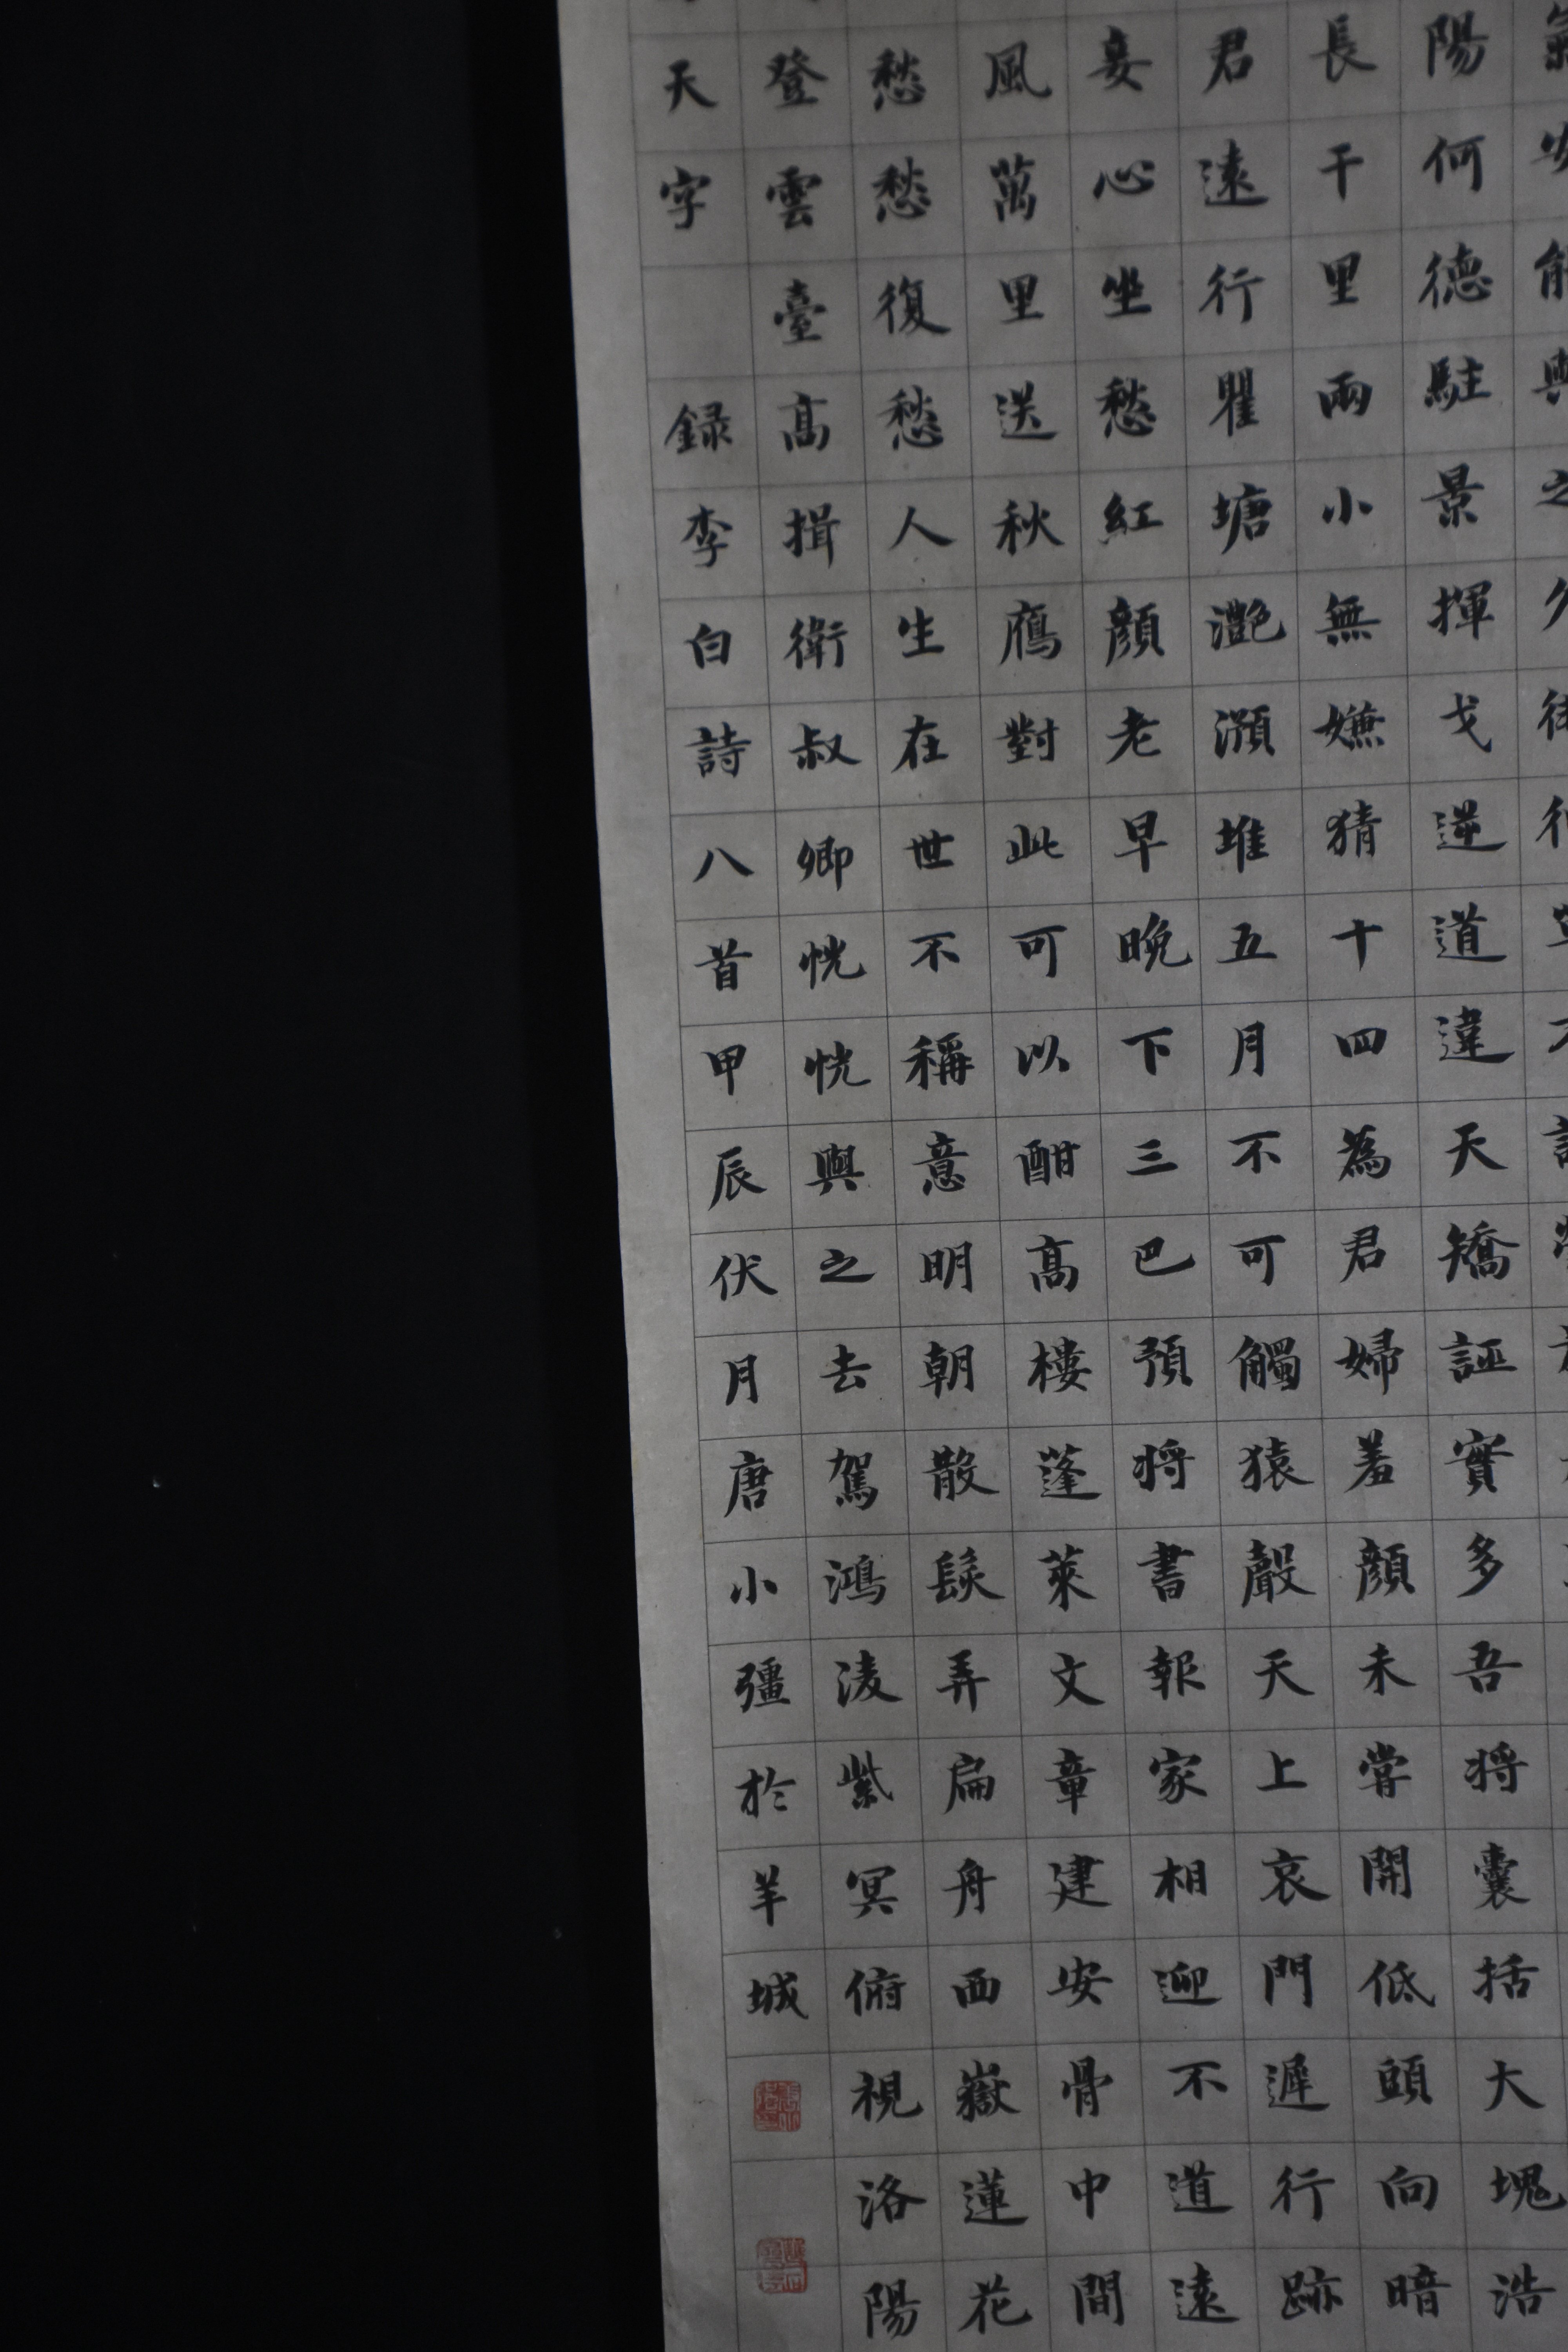 安能與之久
陽何德駐景揮戈逆道違天矯誣實多吾將囊括大塊浩
長干里兩小無嫌猜十四為君婦羞顏未嘗開低頭向暗
君遠行瞿塘灩澦堆五月不可觸猿聲天上哀門遲行跡
妾心坐愁紅顏老早晚下三巴預將書報家相迎不道遠
風萬里送秋鴈對此可以酣高樓蓬萊文章建安骨中間
愁愁復愁人生在世不稱意明朝散髮弄扁舟西嶽蓮花
登雲臺高揖衛叔卿恍恍與之去駕鴻淩紫冥俯視洛陽
天字 錄李白詩八首甲辰伏月唐小彊於羊城